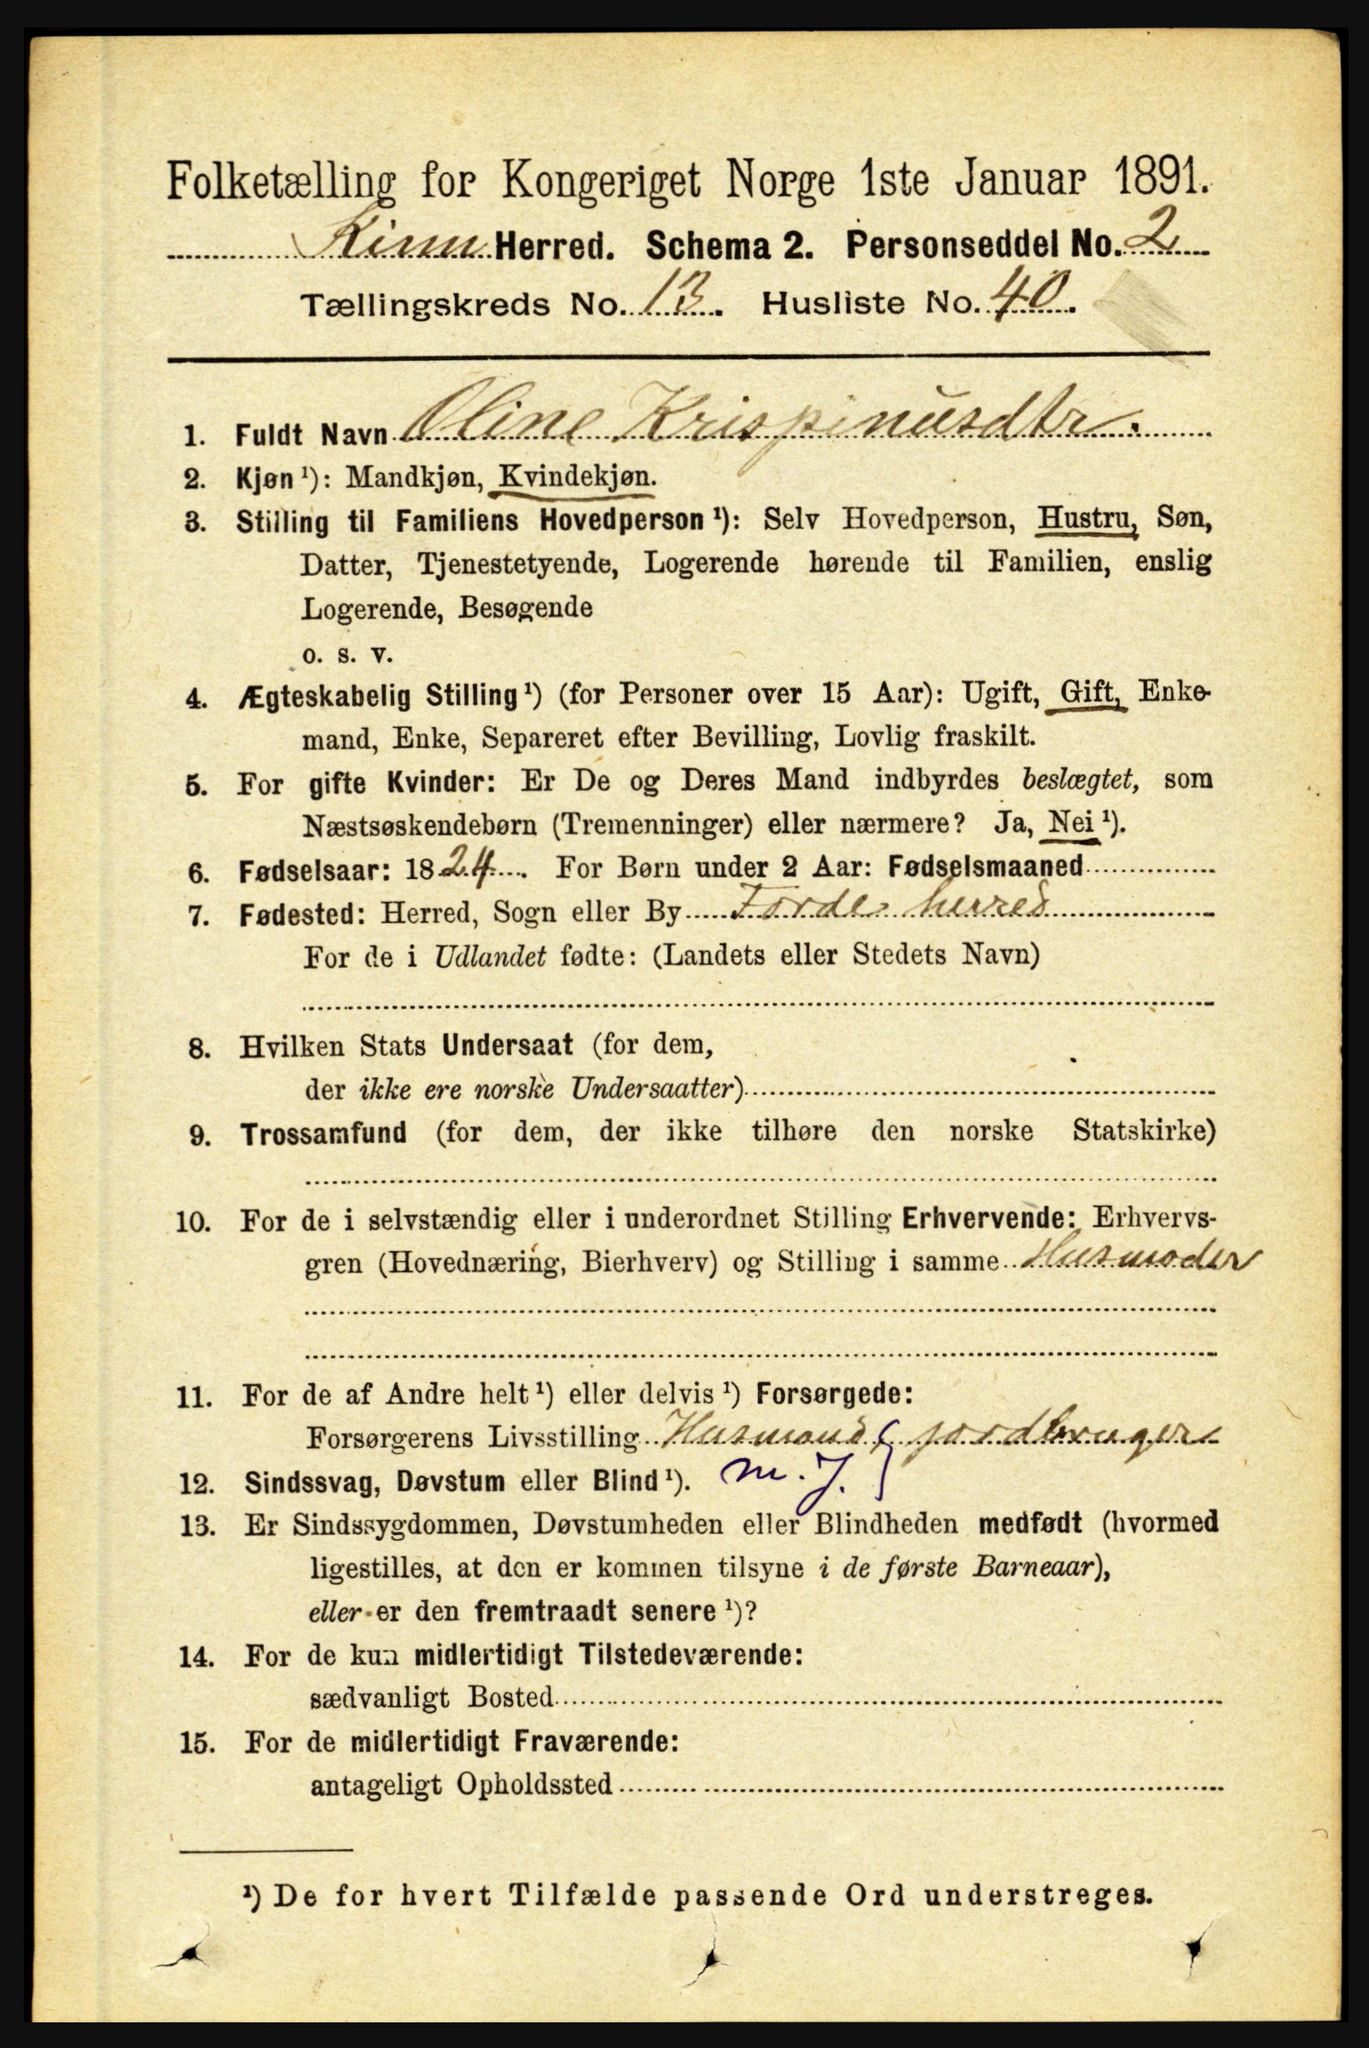 Folketælling for Kongeriget Norge 1ste Januar 1891.
Kinn Herred. Schema 2. Personseddel No. 2
Tællingskreds No. 13. Husliste No. 40.
1. Fuldt Navn Oline Krispinusdtr.
2. Kjøn ¹): Mandkjøn, Kvindekjøn.
3. Stilling til Familiens Hovedperson ¹): Selv Hovedperson, Hustru, Søn,
Datter, Tjenestetyende, Logerende hørende til Familien, enslig
Logerende, Besøgende
o. s. v.
4. Ægteskabelig Stilling ¹) (for Personer over 15 Aar): Ugift, Gift, Enke-
mand, Enke, Separeret efter Bevilling, Lovlig fraskilt.
5. For gifte Kvinder: Er De og Deres Mand indbyrdes beslægtet, som
Næstsøskendebørn (Tremenninger) eller nærmere? Ja, Nei ¹).
6. Fødselsaar: 1824. For Børn under 2 Aar: Fødselsmaaned
7. Fødested: Herred, Sogn eller By Førde herred
For de i Udlandet fødte: (Landets eller Stedets Navn)
8. Hvilken Stats Undersaat (for dem,
der ikke ere norske Undersaatter)
9. Trossamfund (for dem, der ikke tilhøre den norske Statskirke)
10. For de i selvstændig eller i underordnet Stilling Erhvervende: Erhvervs-
gren (Hovednæring, Bierhverv) og Stilling i samme Husmoder
11. For de af Andre helt ¹) eller delvis ¹) Forsørgede:
Forsørgerens Livsstilling Husmand, jordbruger
12. Sindssvag, Døvstum eller Blind ¹). m. J.
13. Er Sindssygdommen, Døvstumheden eller Blindheden medfødt (hvormed
ligestilles, at den er kommen tilsyne i de første Barneaar),
eller er den fremtraadt senere ¹)?
14. For de kun midlertidigt Tilstedeværende:
sædvanligt Bosted
15. For de midlertidigt Fraværende:
antageligt Opholdssted
¹) De for hvert Tilfælde passende Ord understreges.